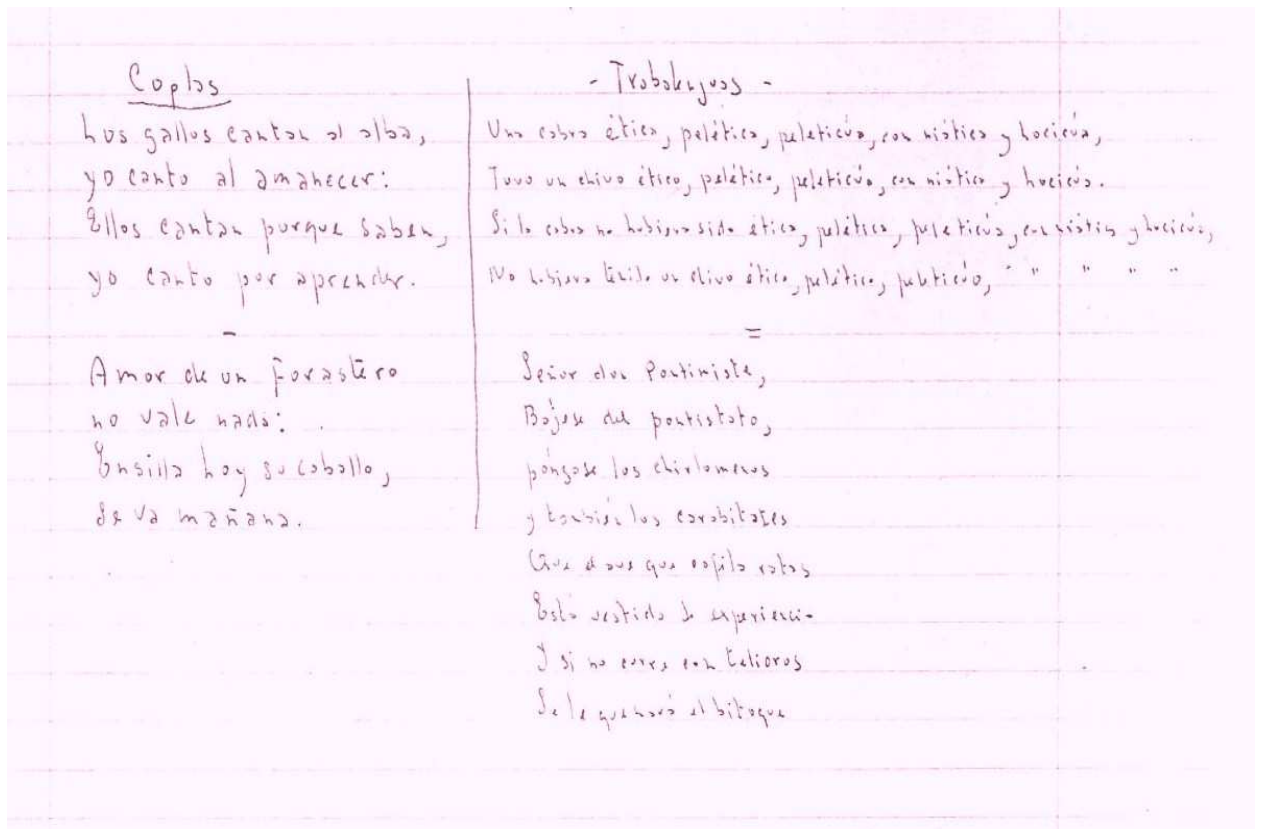 Coplas
Los gallos cantan al alba,
yo canto al amanecer:
Ellos cantan porque saben,
yo canto por aprender.
-
Amor de un forastero
no vale nada:
Ensilla hoy su caballo,
se va mañana.
- Trabalenguas -
Una cabra ética, pelética, peleticúa, con niática y hocicúa,
Tuvo un chivo ético, pelético, peleticúo, con niático y hocicúo.
Si la cabra no hubiera sido ética, pelética, peleticúa, con niática y hocicúa,
No hubiera tenido un chivo ético, pelético, peleticúo, " " " " "
=
Señor don Pontimiste,
Bájese del pontistato,
póngase los chirlomenos
y también los carabitates
Que el ave que cafila ratas
Está vestido de experiencia
Y si no corre con telioros
Se le quemará el bitoque